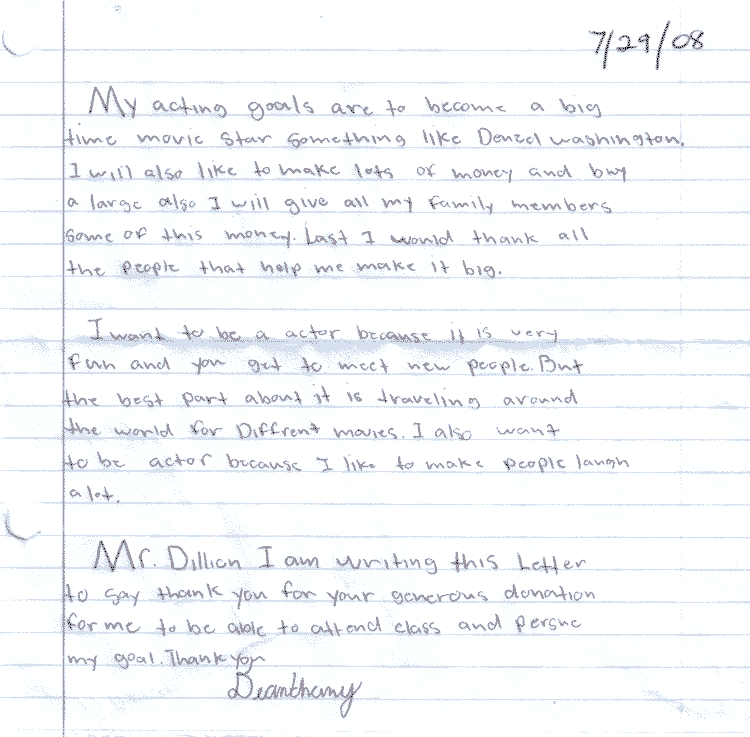 7/29/08
My acting goals are to become a big
time movie star something like Denzel washington.
I will also like to make lots of money and buy
a large also I will give all my family members
some of this money. Last I would thank all
the people that help me make it big.
I want to be a actor because it is very
fun and you get to meet new people. But
the best part about it is traveling around
the world for Diffrent movies. I also want
to be actor because I like to make people laugh
a lot.
Mr. Dillion I am writing this Letter
to say thank you for your generous donation
for me to be able to attend class and persue
my goal. Thank you
Deanthony